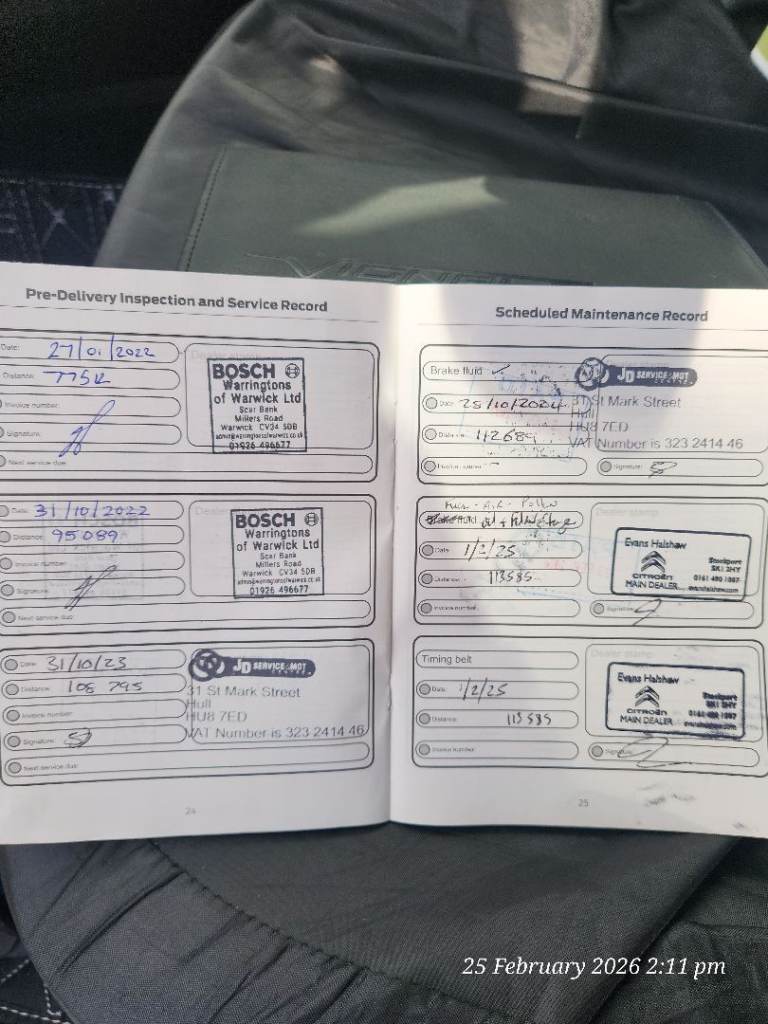 Pre-Delivery Inspection and Service Record
Date: 27/01/2022
Distance: 775k
Invoice number:
Signature:
Next service due:
Dealer stamp
BOSCH
Warringtons
of Warwick Ltd
Scar Bank
Millers Road
Warwick CV34 5DB
01926 496677
Date: 31/10/2022
Distance: 95089
Invoice number:
Signature:
Next service due:
BOSCH
Warringtons
of Warwick Ltd
Scar Bank
Millers Road
Warwick CV34 5DB
01926 496677
Date: 31/10/23
Distance: 108 795
Invoice number:
Signature:
Next service due:
JD SERVICE & MOT
CENTRE
31 St Mark Street
Hull
HU8 7ED
VAT Number is 323 2414 46
24
Scheduled Maintenance Record
Brake fluid ✓
Date: 25/10/2024
Distance: 112689
Invoice number:
Signature:
JD SERVICE & MOT
CENTRE
31 St Mark Street
Hull
HU8 7ED
VAT Number is 323 2414 46
Air - Pollen
Brake fluid oil + Filter Change
Date: 1/2/25
Distance: 113585
Invoice number:
Signature:
Dealer stamp
Evans Halshaw
CITROËN
MAIN DEALER
Stockport
SK1 2HY
Timing belt
Date: 1/2/25
Distance: 113585
Invoice number:
Signature:
Dealer stamp
Evans Halshaw
CITROËN
MAIN DEALER
Stockport
SK1 2HY
25
25 February 2026 2:11 pm